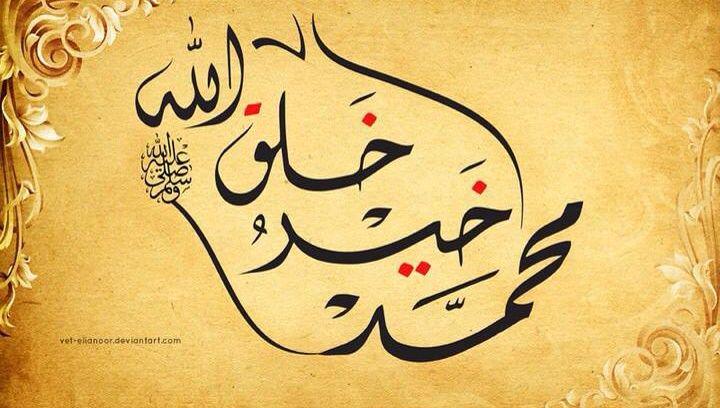 محمّد
خيرُ
خلق
الله
صلى الله عليه وسلم
vet-elianoor.deviantart.com